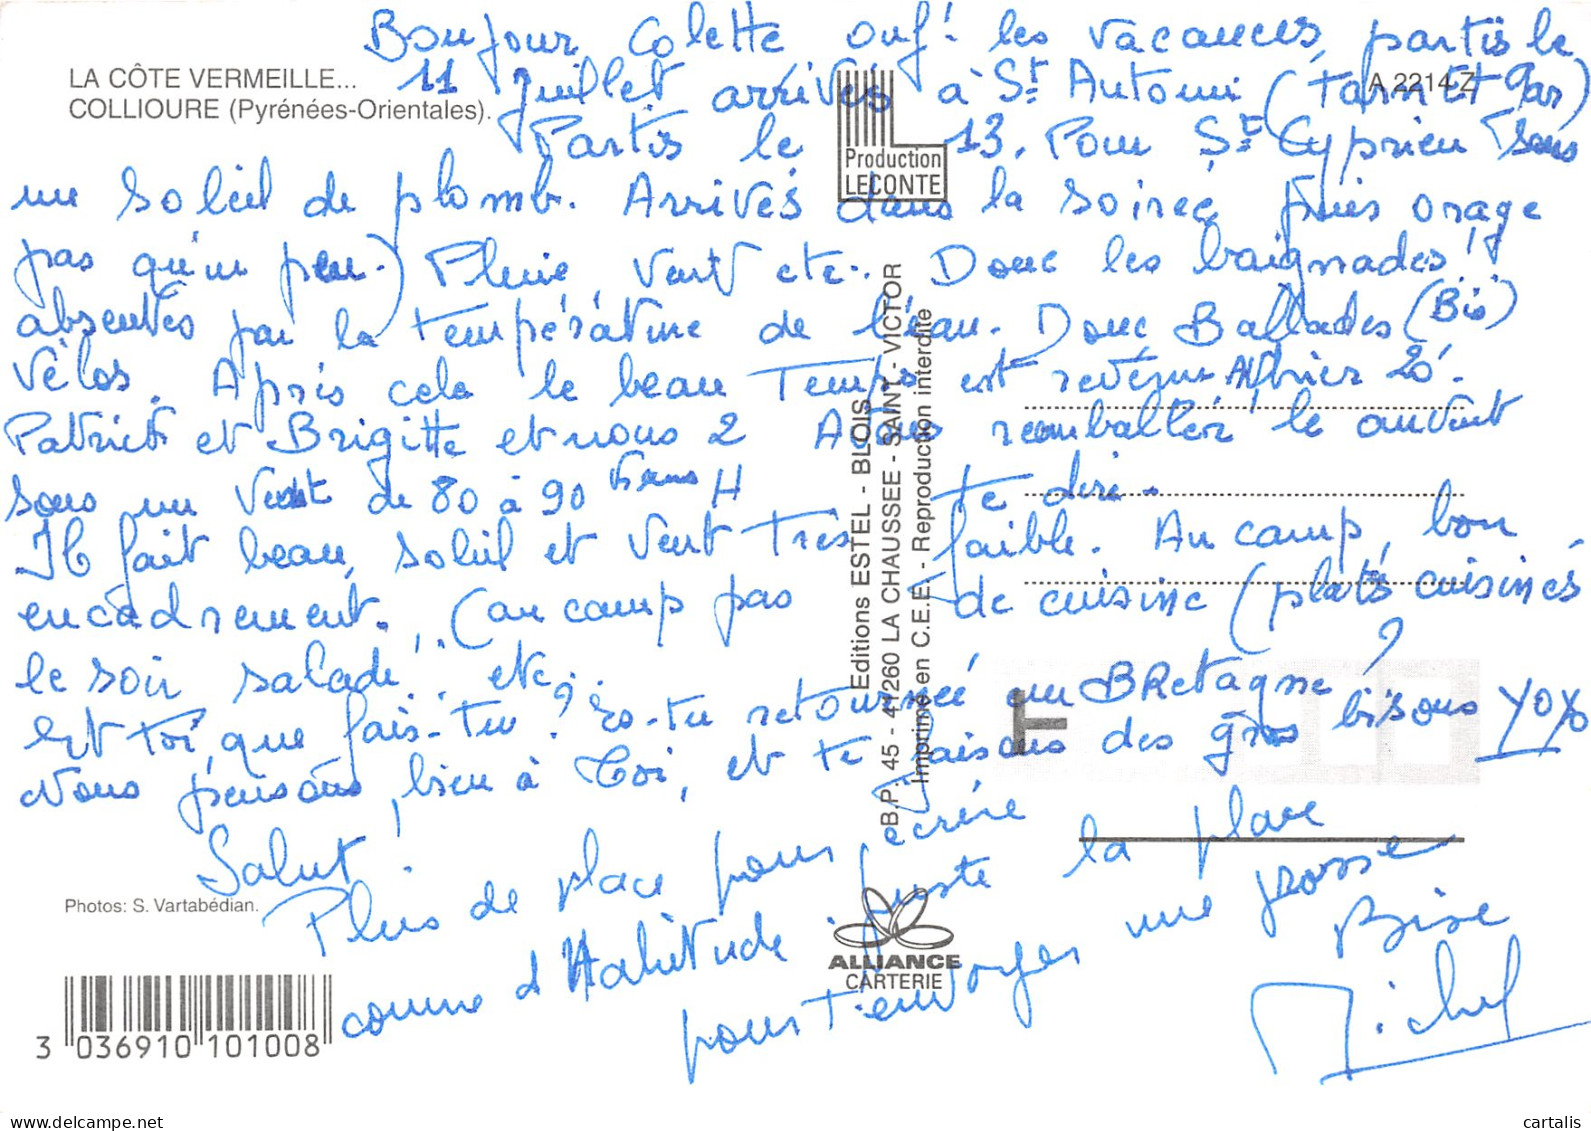 Bonjour Colette ouf! les vacances, partis le
LA CÔTE VERMEILLE...
11 Juillet arrivés à St Antonin (Tarn et Gar)
A 2214 Z
COLLIOURE (Pyrénées-Orientales).
Partis le 13. Pour St Cyprien sous
Production
LECONTE
un soleil de plomb. Arrivés dans la soirée puis orage
pas qu'un peu.) Pluie, Vent etc.. Donc les baignades!
absentes par la température de l'eau. Donc Ballades (Bis)
Vélos. Après cela le beau Temps est revenu hier 20.
Patrick et Brigitte et nous 2 Avons remballer le auvent
sous un Vent de 80 à 90 H te dire.
Il fait beau, soleil et Vent Très faible. Au camp, bon
encadrement. (au camp pas de cuisine (plats cuisinés
le soir salade.. etc..
Et Toi, que fais-tu? Es-tu retournée en BRetagne?
Nous pensons bien à Toi, et te faisons des gros bisous YOYO
Salut!
Plus de place pour écrire
comme d'Habitude, juste la place
pour T'envoyer une grosse
Bise
Michel
Editions ESTEL - BLOIS
B.P. 45 - 41260 LA CHAUSSEE - SAINT - VICTOR
Imprimé en C.E.E. - Reproduction interdite
Photos: S. Vartabédian.
ALLIANCE
CARTERIE
3 036910 101008
delcampe.net
cartalis